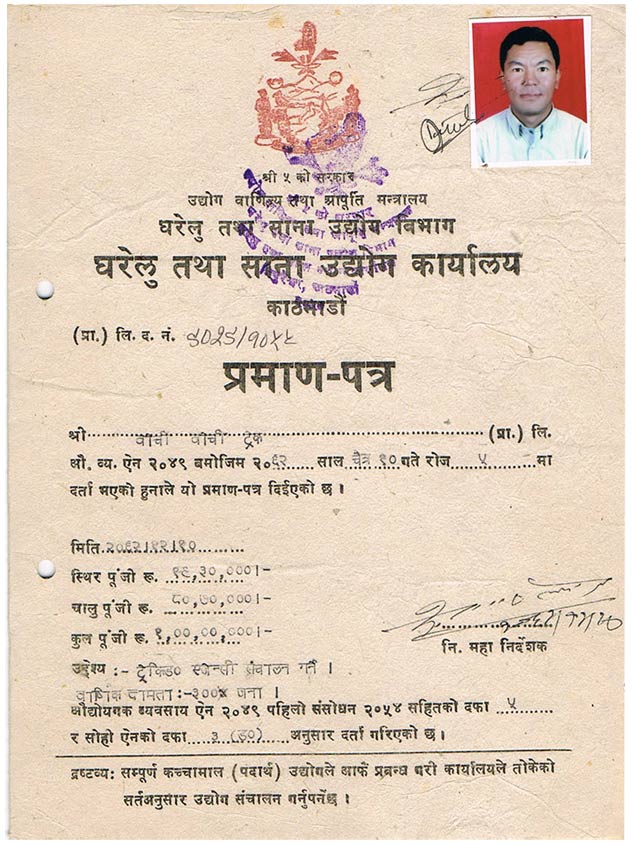 श्री ५ को सरकार
उद्योग वाणिज्य तथा आपूर्ति मन्त्रालय
घरेलु तथा साना उद्योग विभाग
घरेलु तथा साना उद्योग कार्यालय
काठमाडौं
(प्रा.) लि. द. नं.
प्रमाण-पत्र
श्री ट्रेक (प्रा.) लि.
औ. व्य. ऐन २०४९ बमोजिम २०६२ साल चैत्र १० गते रोज ५ मा
दर्ता भएको हुनाले यो प्रमाण-पत्र दिईएको छ ।
मिति २०६२।१२।१०
स्थिर पूंजी रू. १९,३०,०००।-
चालु पूंजी रू. ८०,७०,०००।-
कुल पूंजी रू. १,००,००,०००।-
नि. महा निर्देशक
उद्देश्य :- ट्रेकिङ एजेन्सी संचालन गर्ने ।
वार्षिक क्षमता :-३००४ जना ।
औद्योगिक व्यवसाय ऐन २०४९ पहिलो संसोधन २०५४ सहितको दफा ५
र सोही ऐनको दफा ३ (ङ०) अनुसार दर्ता गरिएको छ ।
द्रष्टव्य: सम्पूर्ण कच्चामाल (पदार्थ) उद्योगले आफै प्रबन्ध गरी कार्यालयले तोकेको
सर्तअनुसार उद्योग संचालन गर्नुपर्नेछ ।